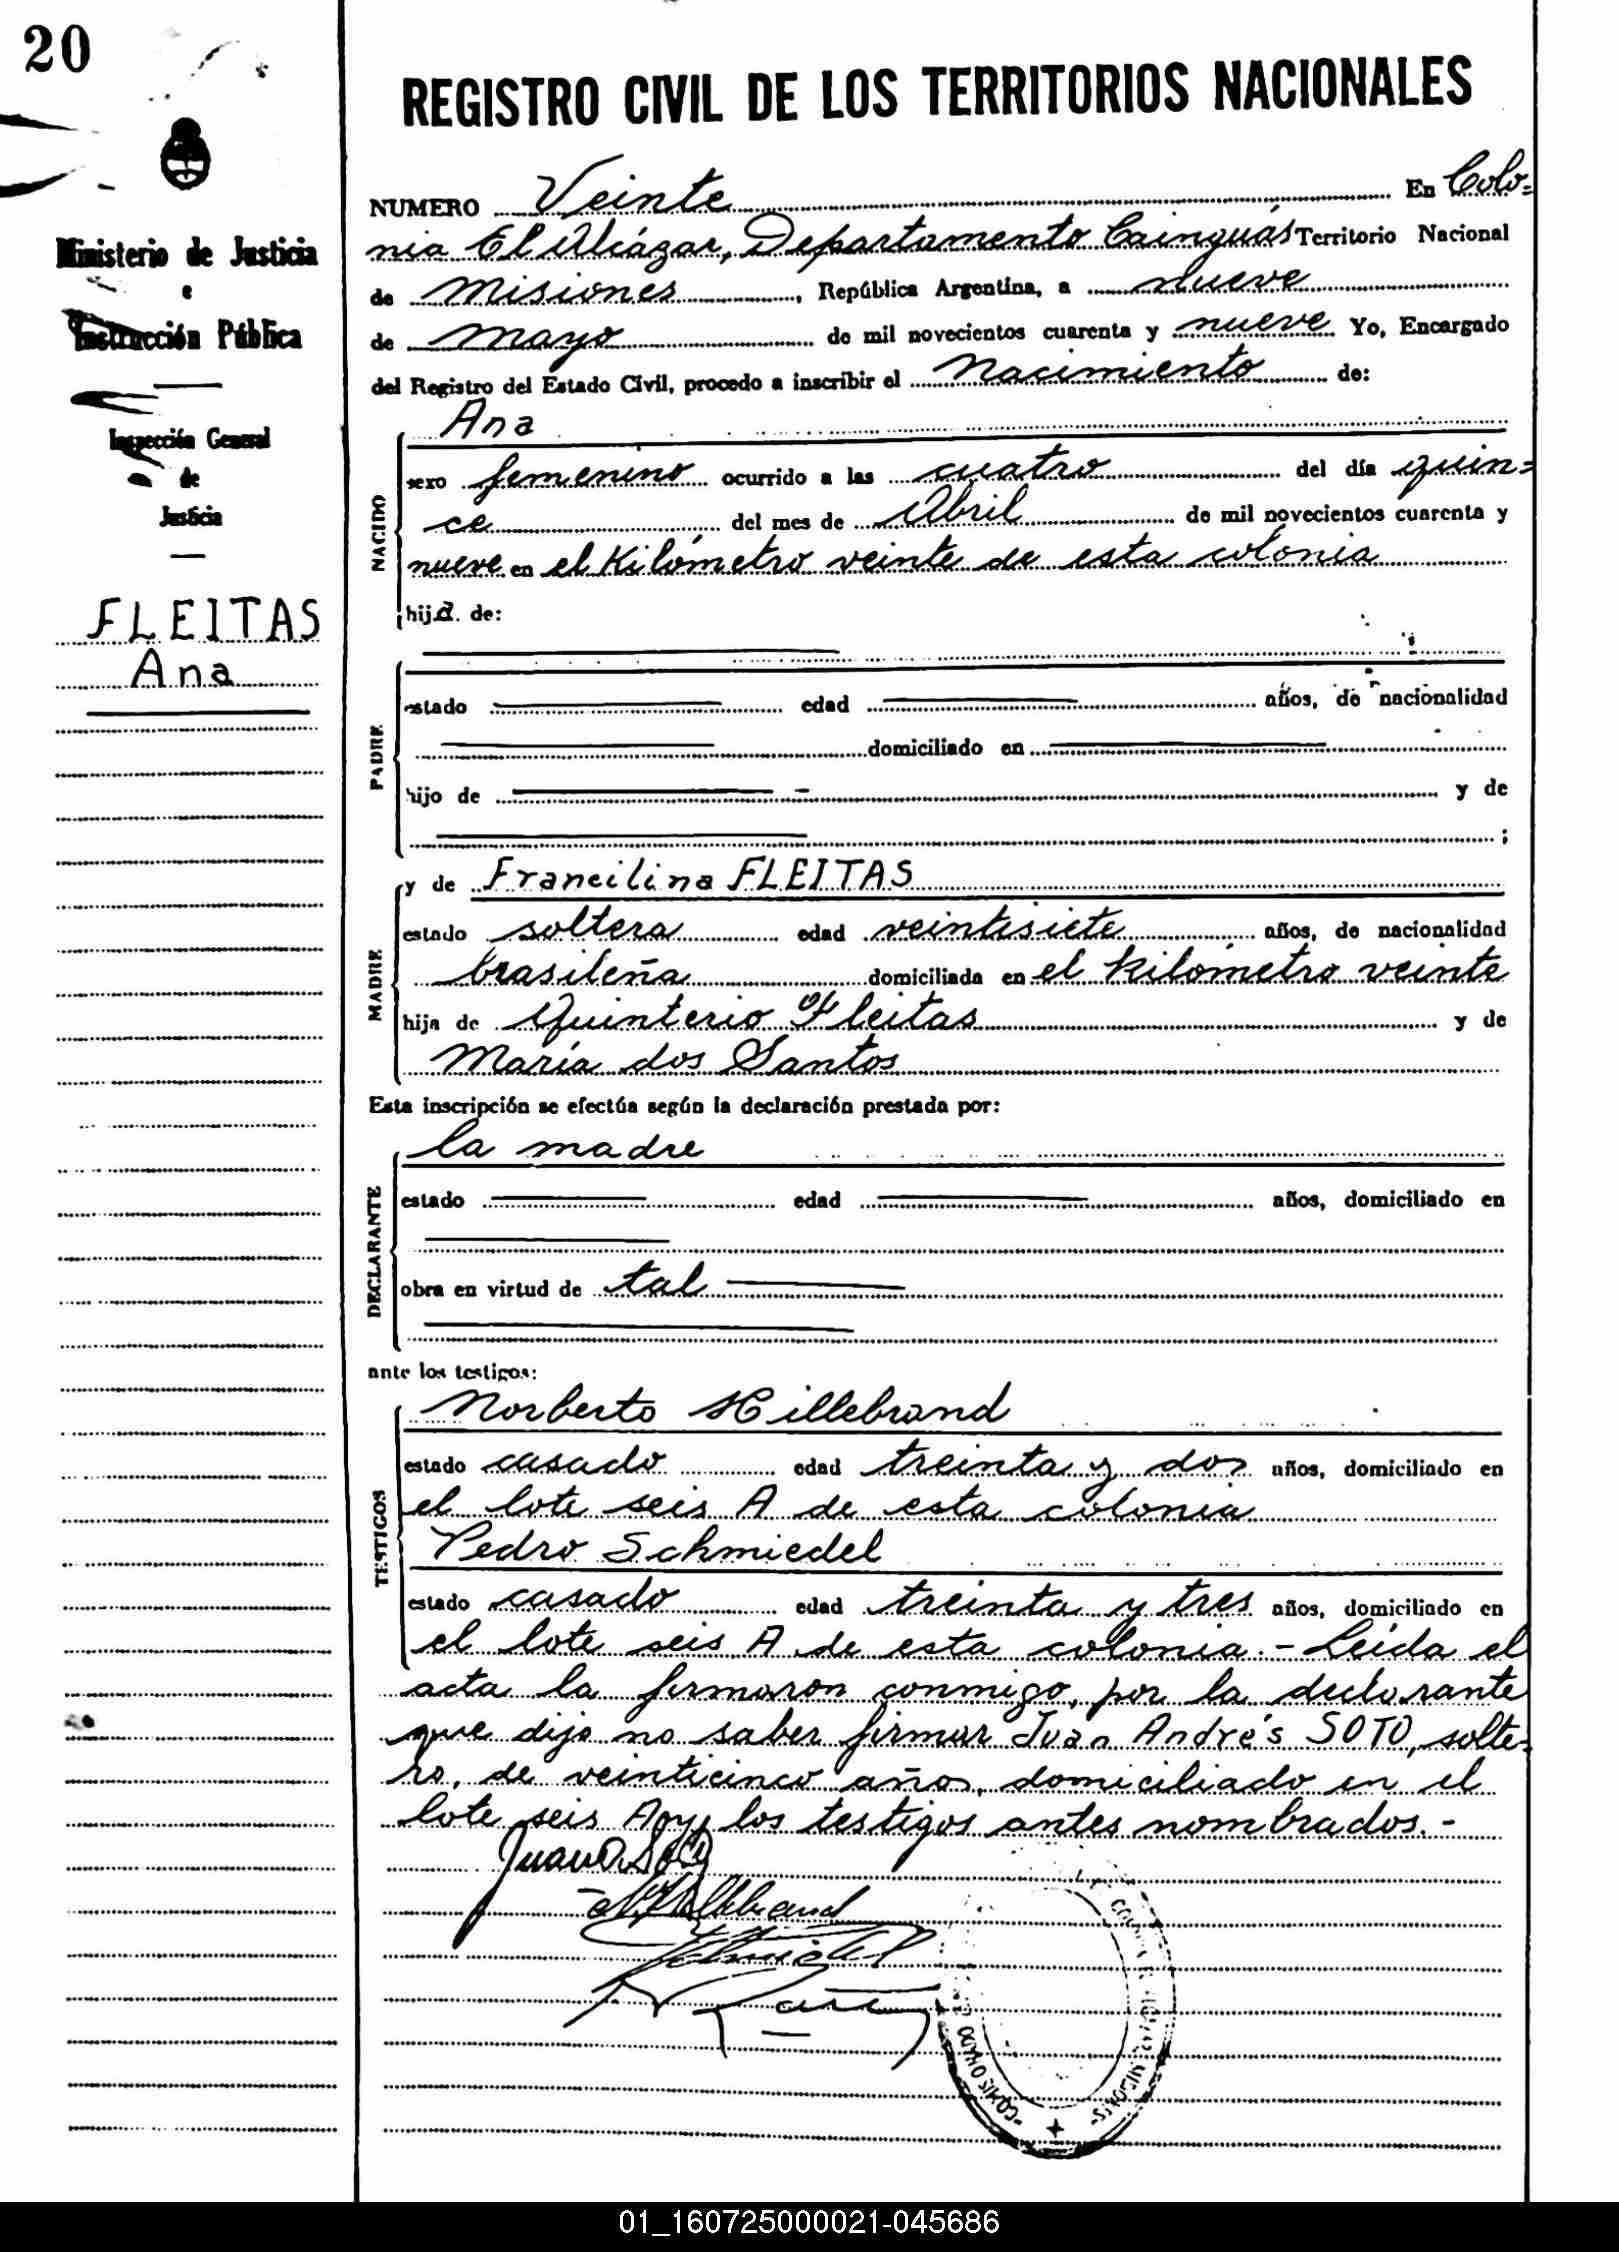 20
REGISTRO CIVIL DE LOS TERRITORIOS NACIONALES
Ministerio de Justicia
e
Instrucción Pública
Inspección General
de
Justicia
FLEITAS
Ana
NUMERO Veinte En Colo=
nia El Alcázar, Departamento Cainguás Territorio Nacional
de Misiones, República Argentina, a nueve
de mayo de mil novecientos cuarenta y nueve Yo, Encargado
del Registro del Estado Civil, procedo a inscribir el Nacimiento de:
NACIDO
Ana
sexo femenino ocurrido a las cuatro del día quin=
ce del mes de Abril de mil novecientos cuarenta y
nueve en el Kilómetro veinte de esta colonia
hija de:
PADRE
estado edad años, de nacionalidad
domiciliado en
hijo de y de
;
MADRE
y de Francilina FLEITAS
estado soltera edad veintisiete años, de nacionalidad
brasileña domiciliada en el kilómetro veinte
hija de Quinterio Fleitas y de
María dos Santos
Esta inscripción se efectúa según la declaración prestada por:
DECLARANTE
la madre
estado edad años, domiciliado en
obra en virtud de tal
ante los testigos:
TESTIGOS
Norberto Hillebrand
estado casado edad treinta y dos años, domiciliado en
el lote seis A de esta colonia
Pedro Schmiedel
estado casado edad treinta y tres años, domiciliado en
el lote seis A de esta colonia.- Leída el
acta la firmaron conmigo, por la declarante
que dijo no saber firmar Juan Andrés SOTO, solte=
ro, de veinticinco años, domiciliado en el
lote seis A y los testigos antes nombrados.-
Juan A. Soto
N Hillebrand
Schmiedel
MISIONES
01_160725000021-045686